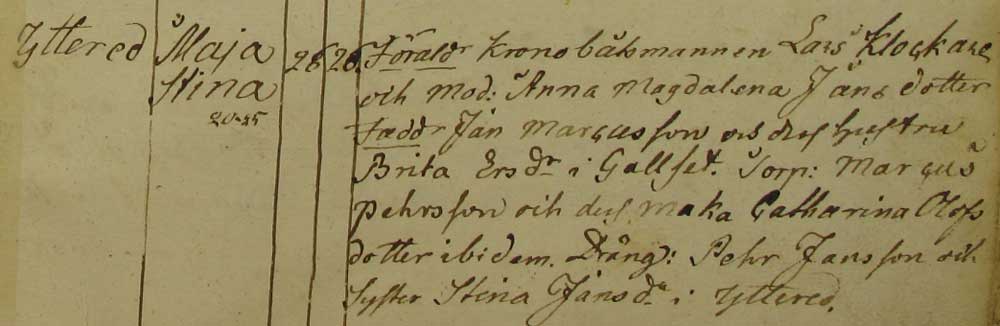 Yttered Maja 26 26. Föräldr Kronobåtsmannen Lars Klockare
Stina och Mod: Anna Magdalena Jäns dotter
20-25 Fäddr Jän Marcusson och dess hustru
Brita Ersdr i Gallset. Torp: Marcus
Pehrsson och dess maka Catharina Olofs
dotter ibidem. Dräng: Pehr Jansson och
Syster Stina Jänsdr i Yttered.